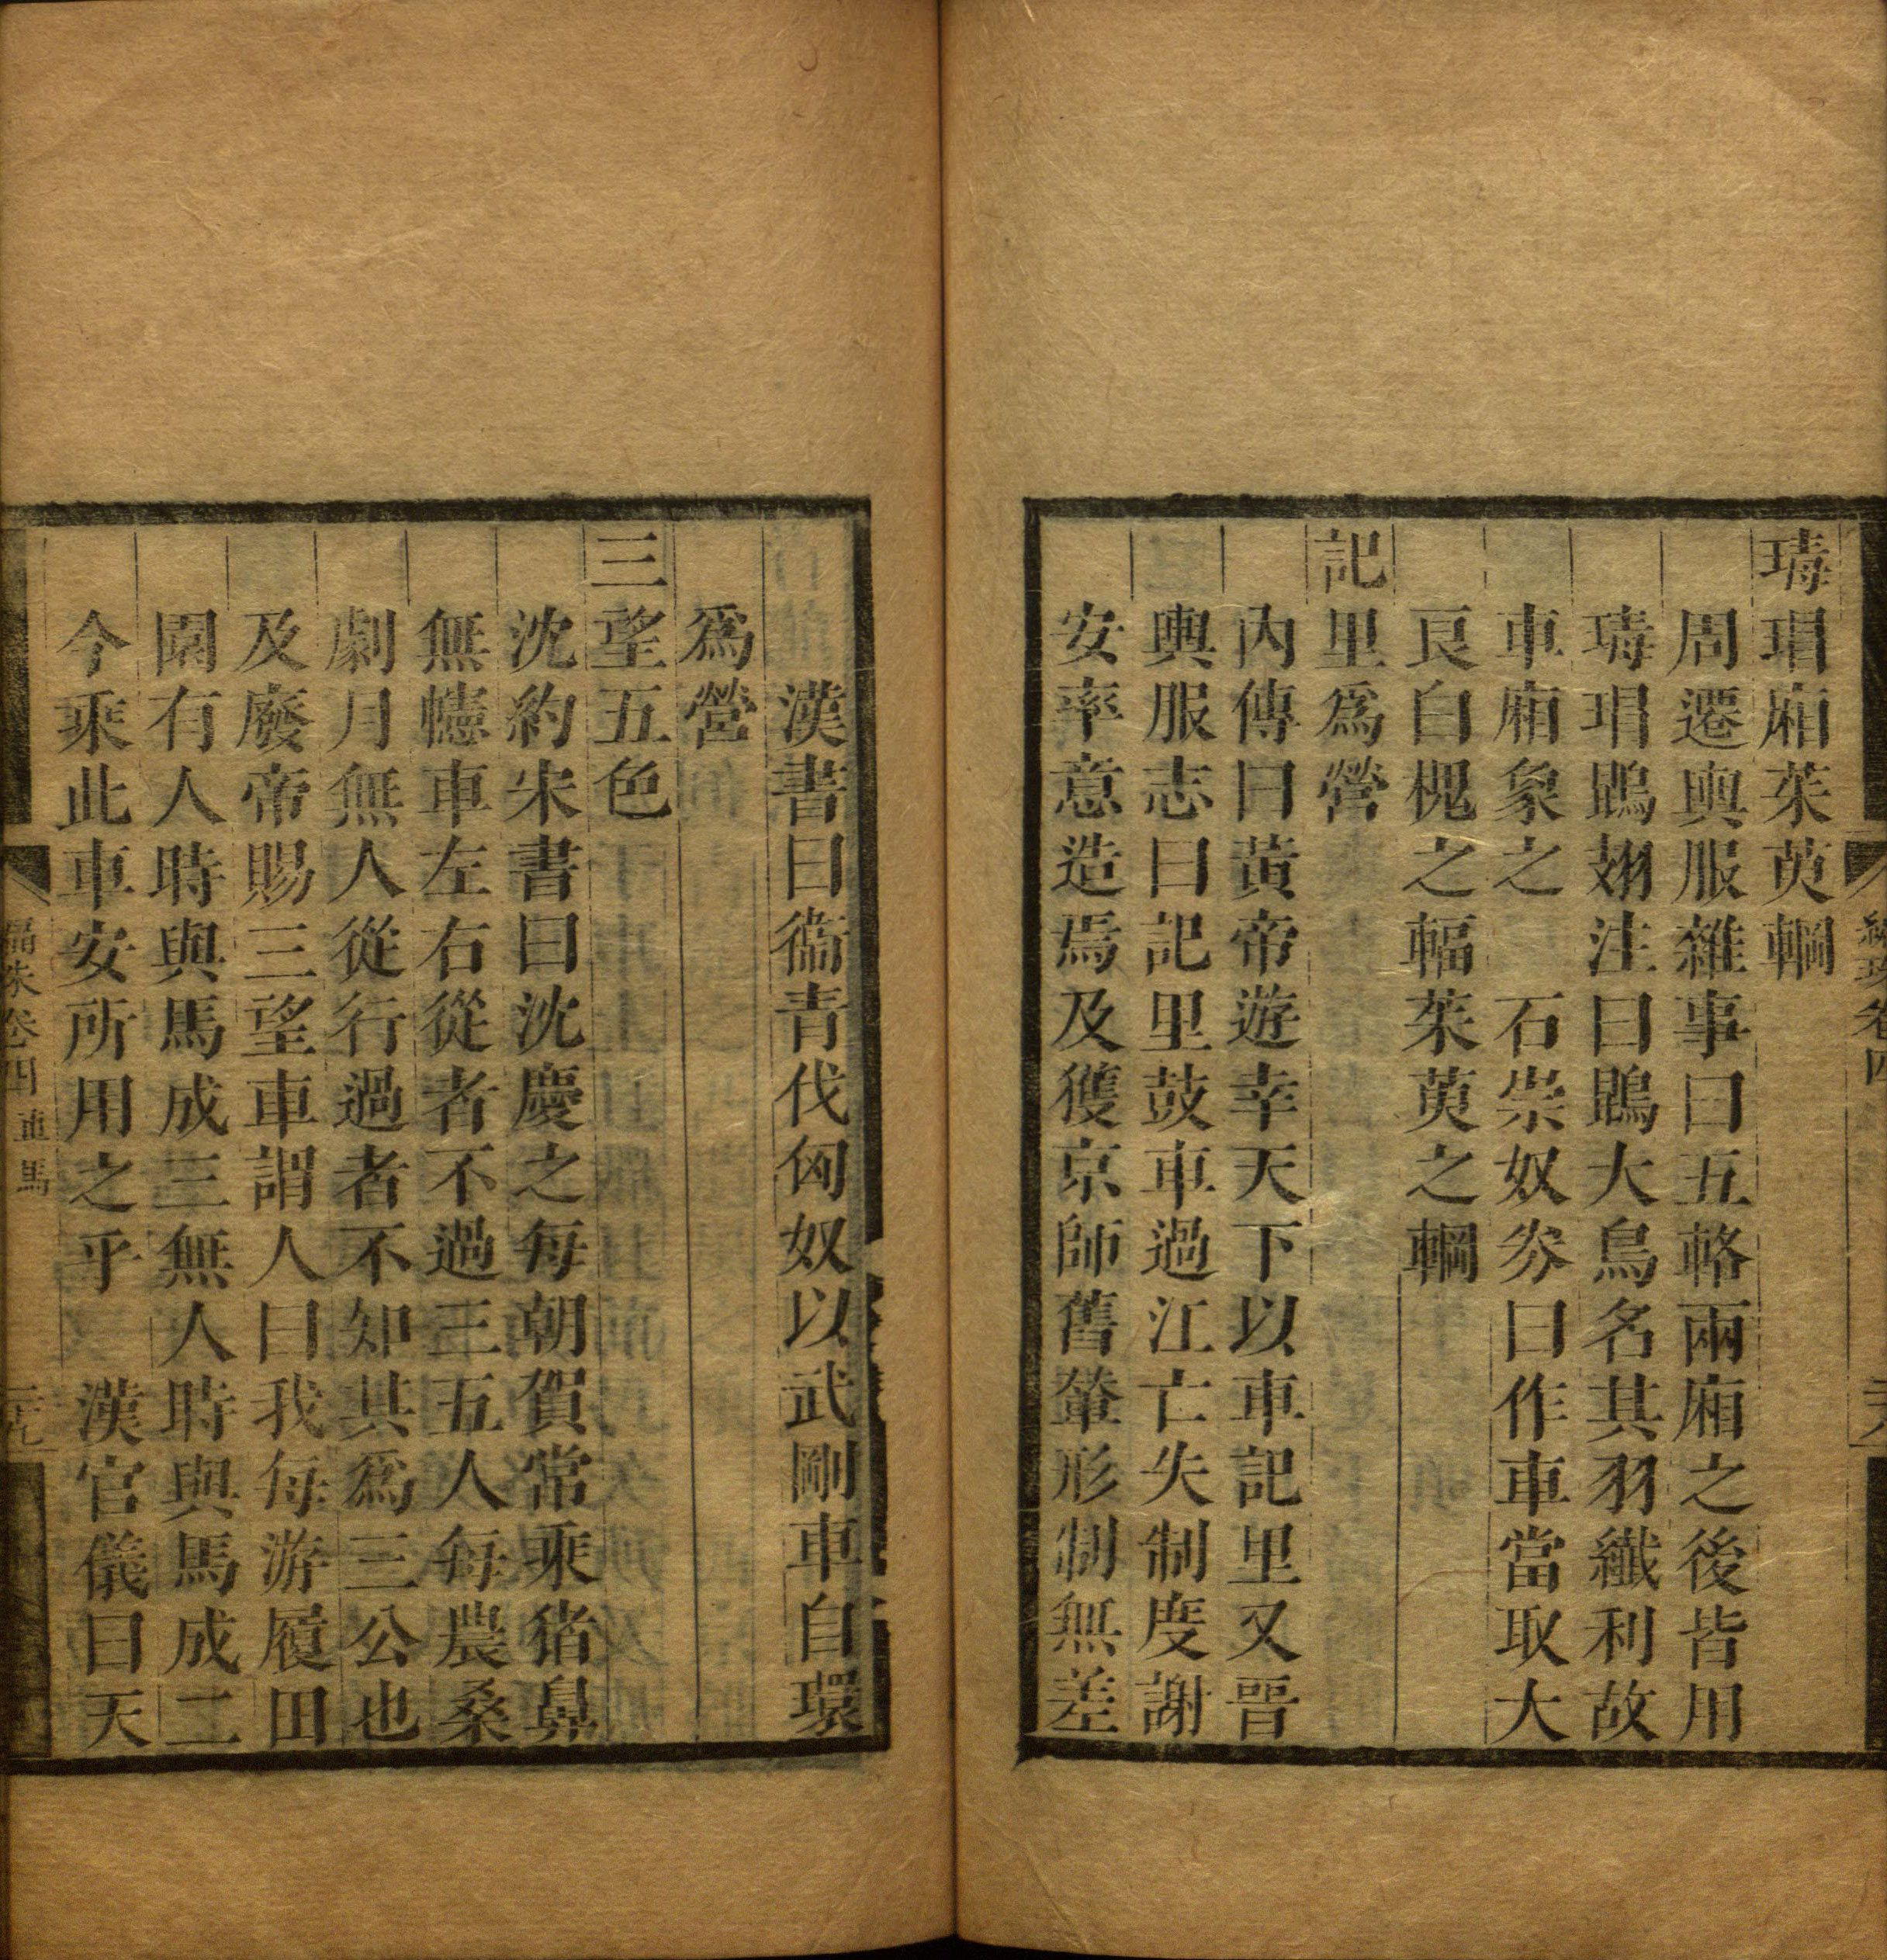 瑇瑁廂茱萸輞
周遷輿服雜事曰五輅兩廂之後皆用
瑇瑁鵾翅注曰鵾大鳥名其羽纖利故
車廂象之　石崇奴券曰作車當取大
良白槐之輻茱萸之輞
記里爲營
內傳曰黃帝遊幸天下以車記里又晉
輿服志曰記里鼓車過江亡失制度謝
安率意造焉及獲京師舊輦形制無差
漢書曰衞青伐匈奴以武剛車自環
爲營
三望五色
沈約宋書曰沈慶之每朝賀常乘猪鼻
無幰車左右從者不過三五人每農桑
劇月無人從行過者不知其爲三公也
及廢帝賜三望車謂人曰我每游履田
園有人時與馬成三無人時與馬成二
今乘此車安所用之乎　漢官儀曰天
編珠卷四 車馬